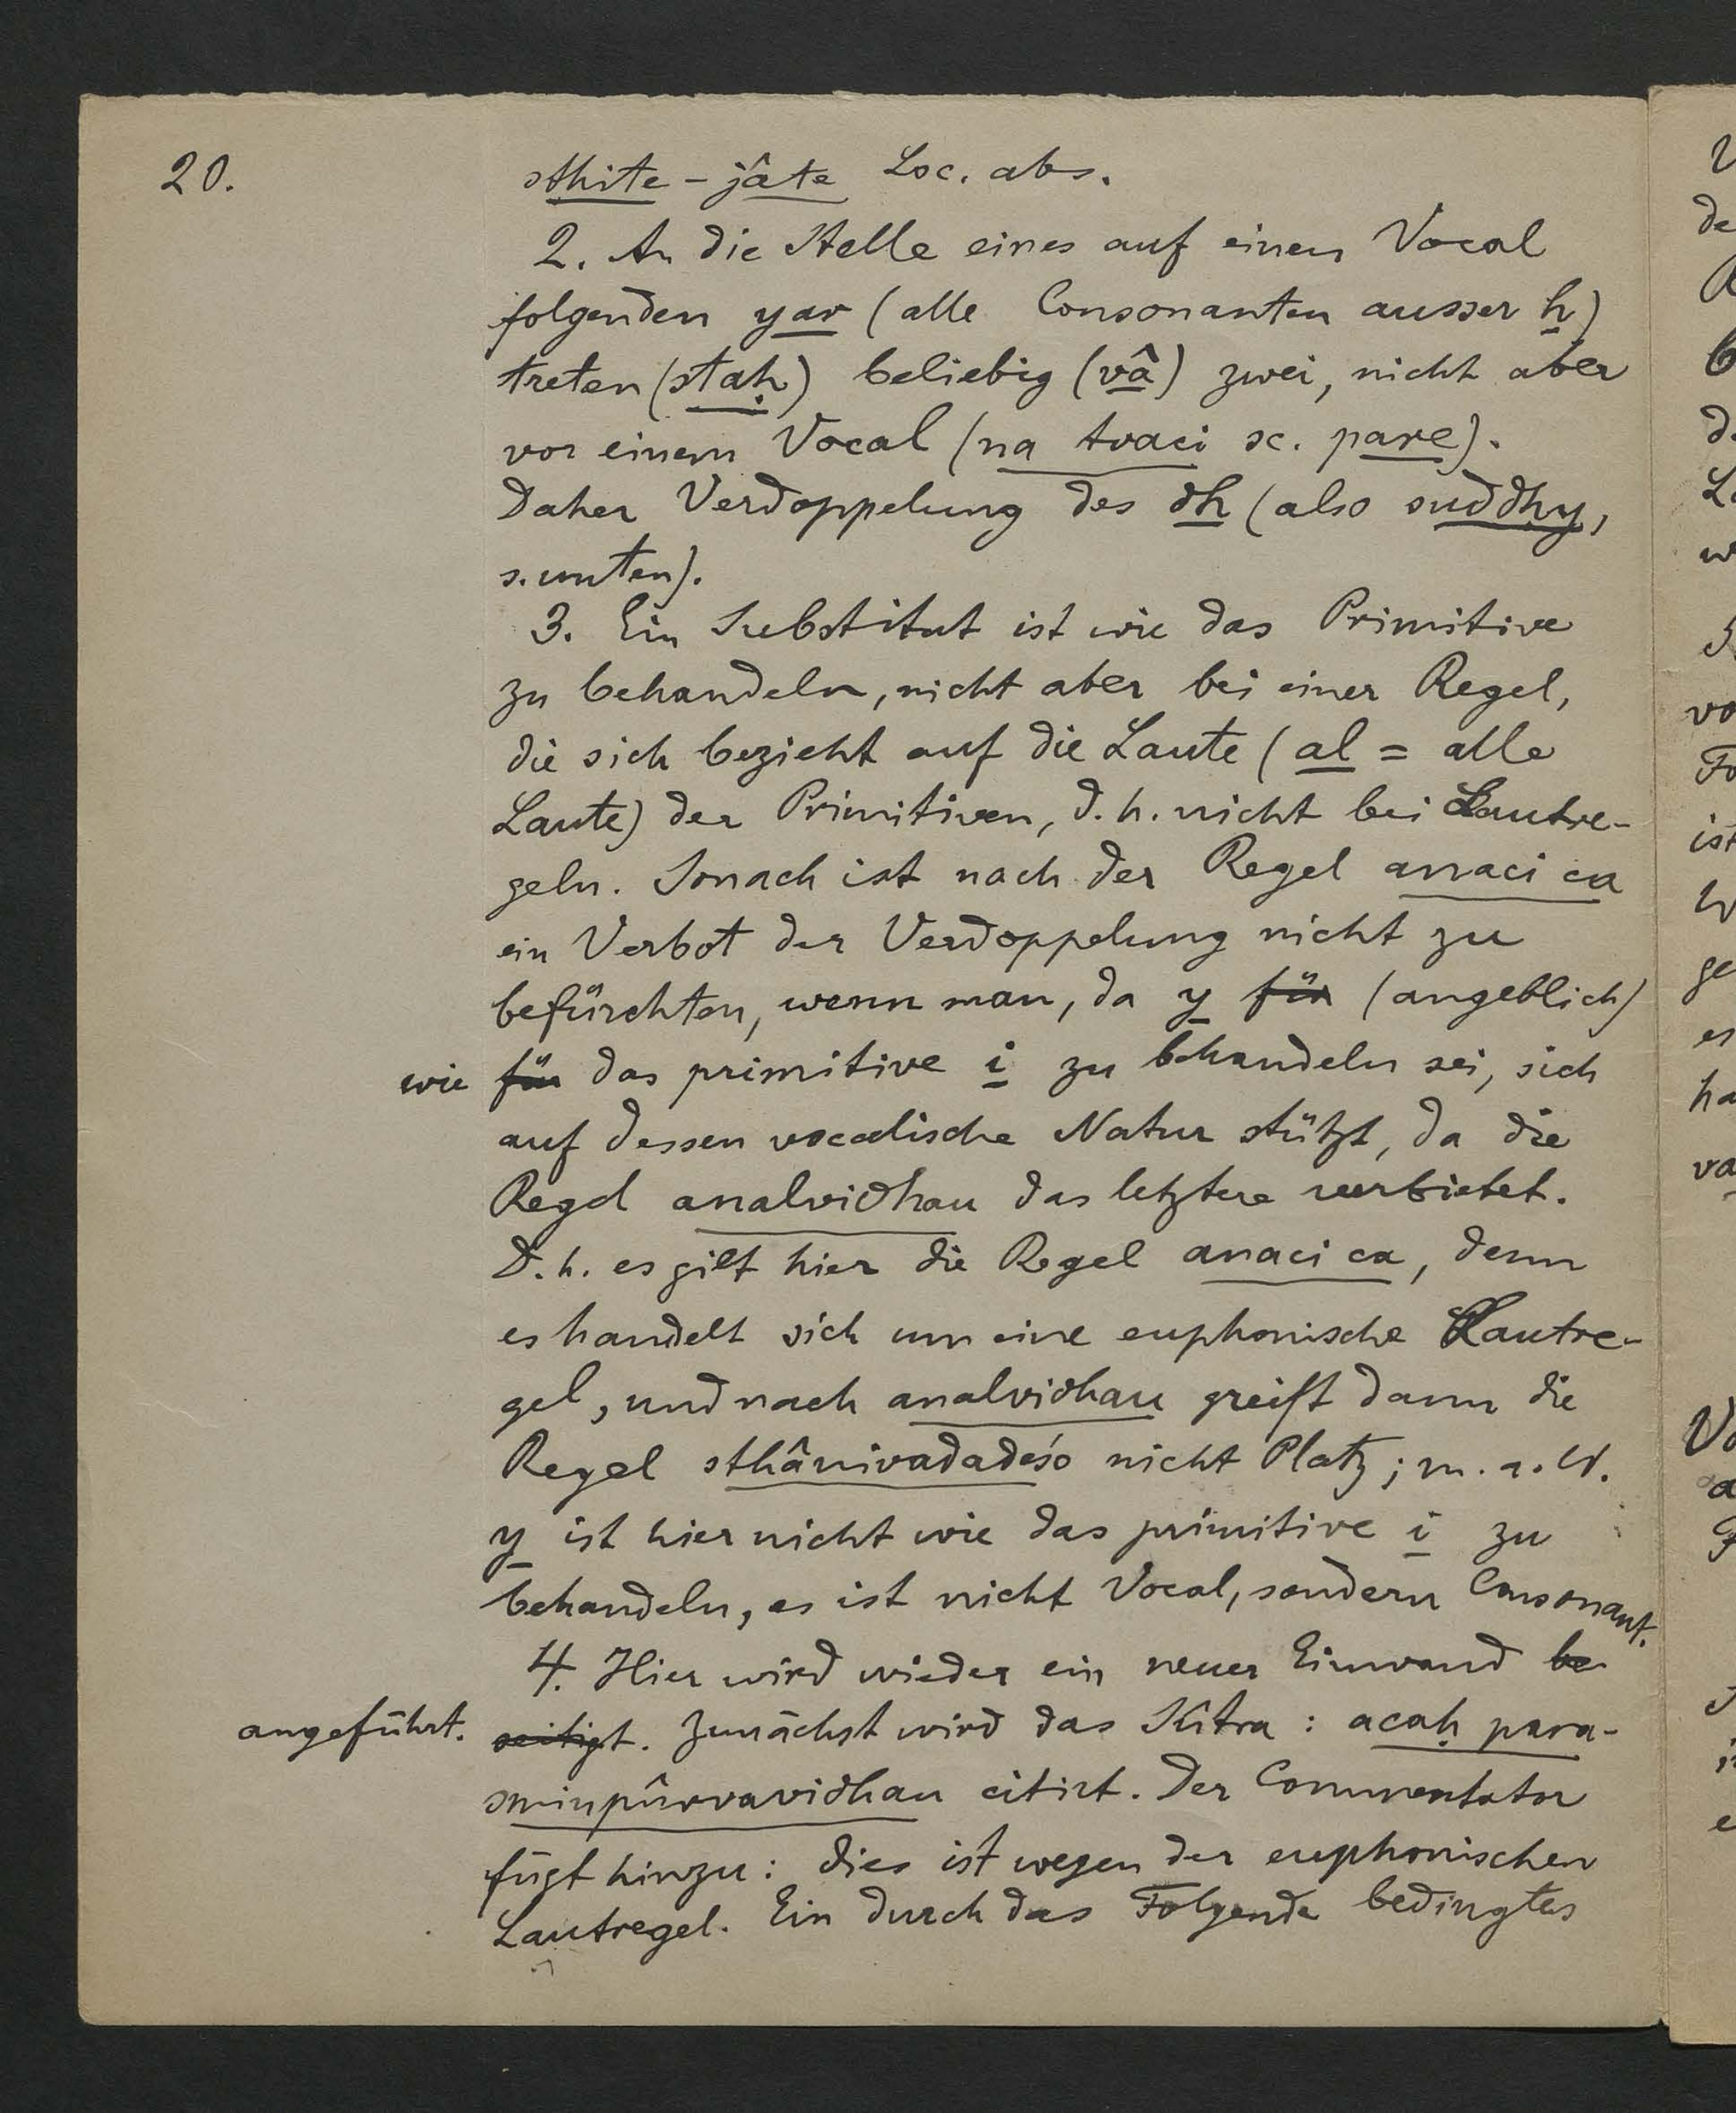 20.
sthite - jâte Loc. abs.
2. An die Stelle eines auf einen Vocal
folgenden yar (alle Consonanten ausser h)
treten (staḥ) beliebig (vâ) zwei, nicht aber
vor einem Vocal (na tvaci sc. pare).
Daher Verdoppelung des dh (also suddhy,
s. unten).
3. Ein Substitut ist wie das Primitive
zu behandeln, nicht aber bei einer Regel,
die sich bezieht auf die Laute (al = alle
Laute) der Primitiven, d. h. nicht bei Lautre-
geln. Sonach ist nach der Regel anaci ca
ein Verbot der Verdoppelung nicht zu
befürchten, wenn man, da y für (angeblich)
wie für das primitive i zu behandeln sei, sich
auf dessen vocalische Natur stützt, da die
Regel analvidhau das letztere verbietet.
D. h. es gilt hier die Regel anaci ca, denn
es handelt sich um eine euphonische Lautre-
gel, und nach analvidhau greift dann die
Regel sthânivadadeśo nicht Platz; m. a. W.
y ist hier nicht wie das primitive i zu
behandeln, es ist nicht Vocal, sondern Consonant.
4. Hier wird wieder ein neuer Einwand be
angeführt. seitigt. Zunächst wird das Sûtra: acaḥ para-
sminpûrvavidhau citirt. Der Commentator
fügt hinzu: dies ist wegen der euphonischen
Lautregel. Ein durch das Folgende bedingtes